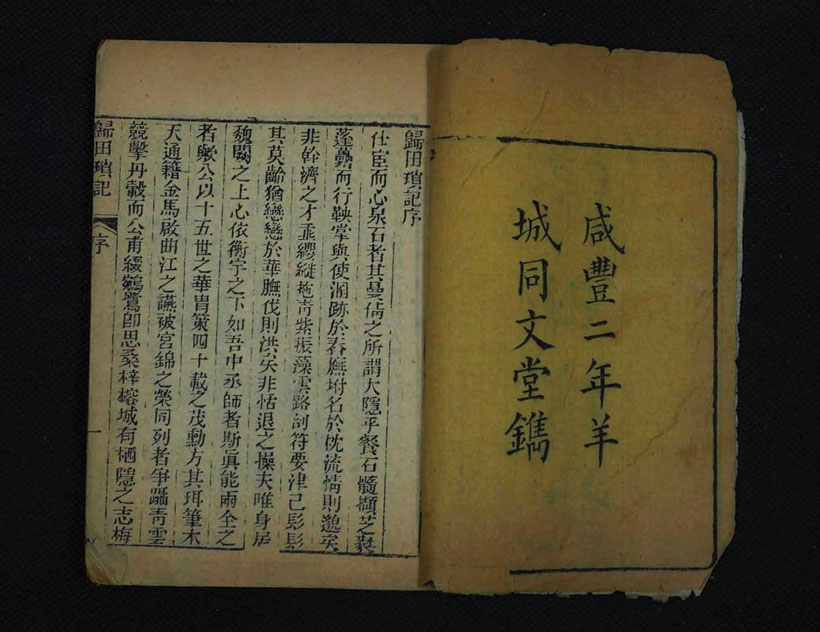 咸豐二年羊
城同文堂鐫
歸田瑣記序
仕宦而心泉石者其曼倩之所謂大隱乎餐石髓擷芝
蓬蘽而行鞅掌與使溷跡於舂廡坿名於枕流情則遯矣
非幹濟之才垂纓縰拖青紫振藻雲路剖符要津已髟髟
其莫齡猶戀戀於華膴伐則洪矣非恬退之操夫唯身居
魏闕之上心依衡宇之下如吾中丞師者斯眞能兩全之
者歟公以十五世之華胄策四十載之茂勳方其珥筆木
天通籍金馬啟曲江之讌被宮錦之榮同列者爭躡青雲
競擊丹轂而公甫綴鵷鷺卽思桑梓榕城有栖隱之志梅
歸田瑣記
序
一